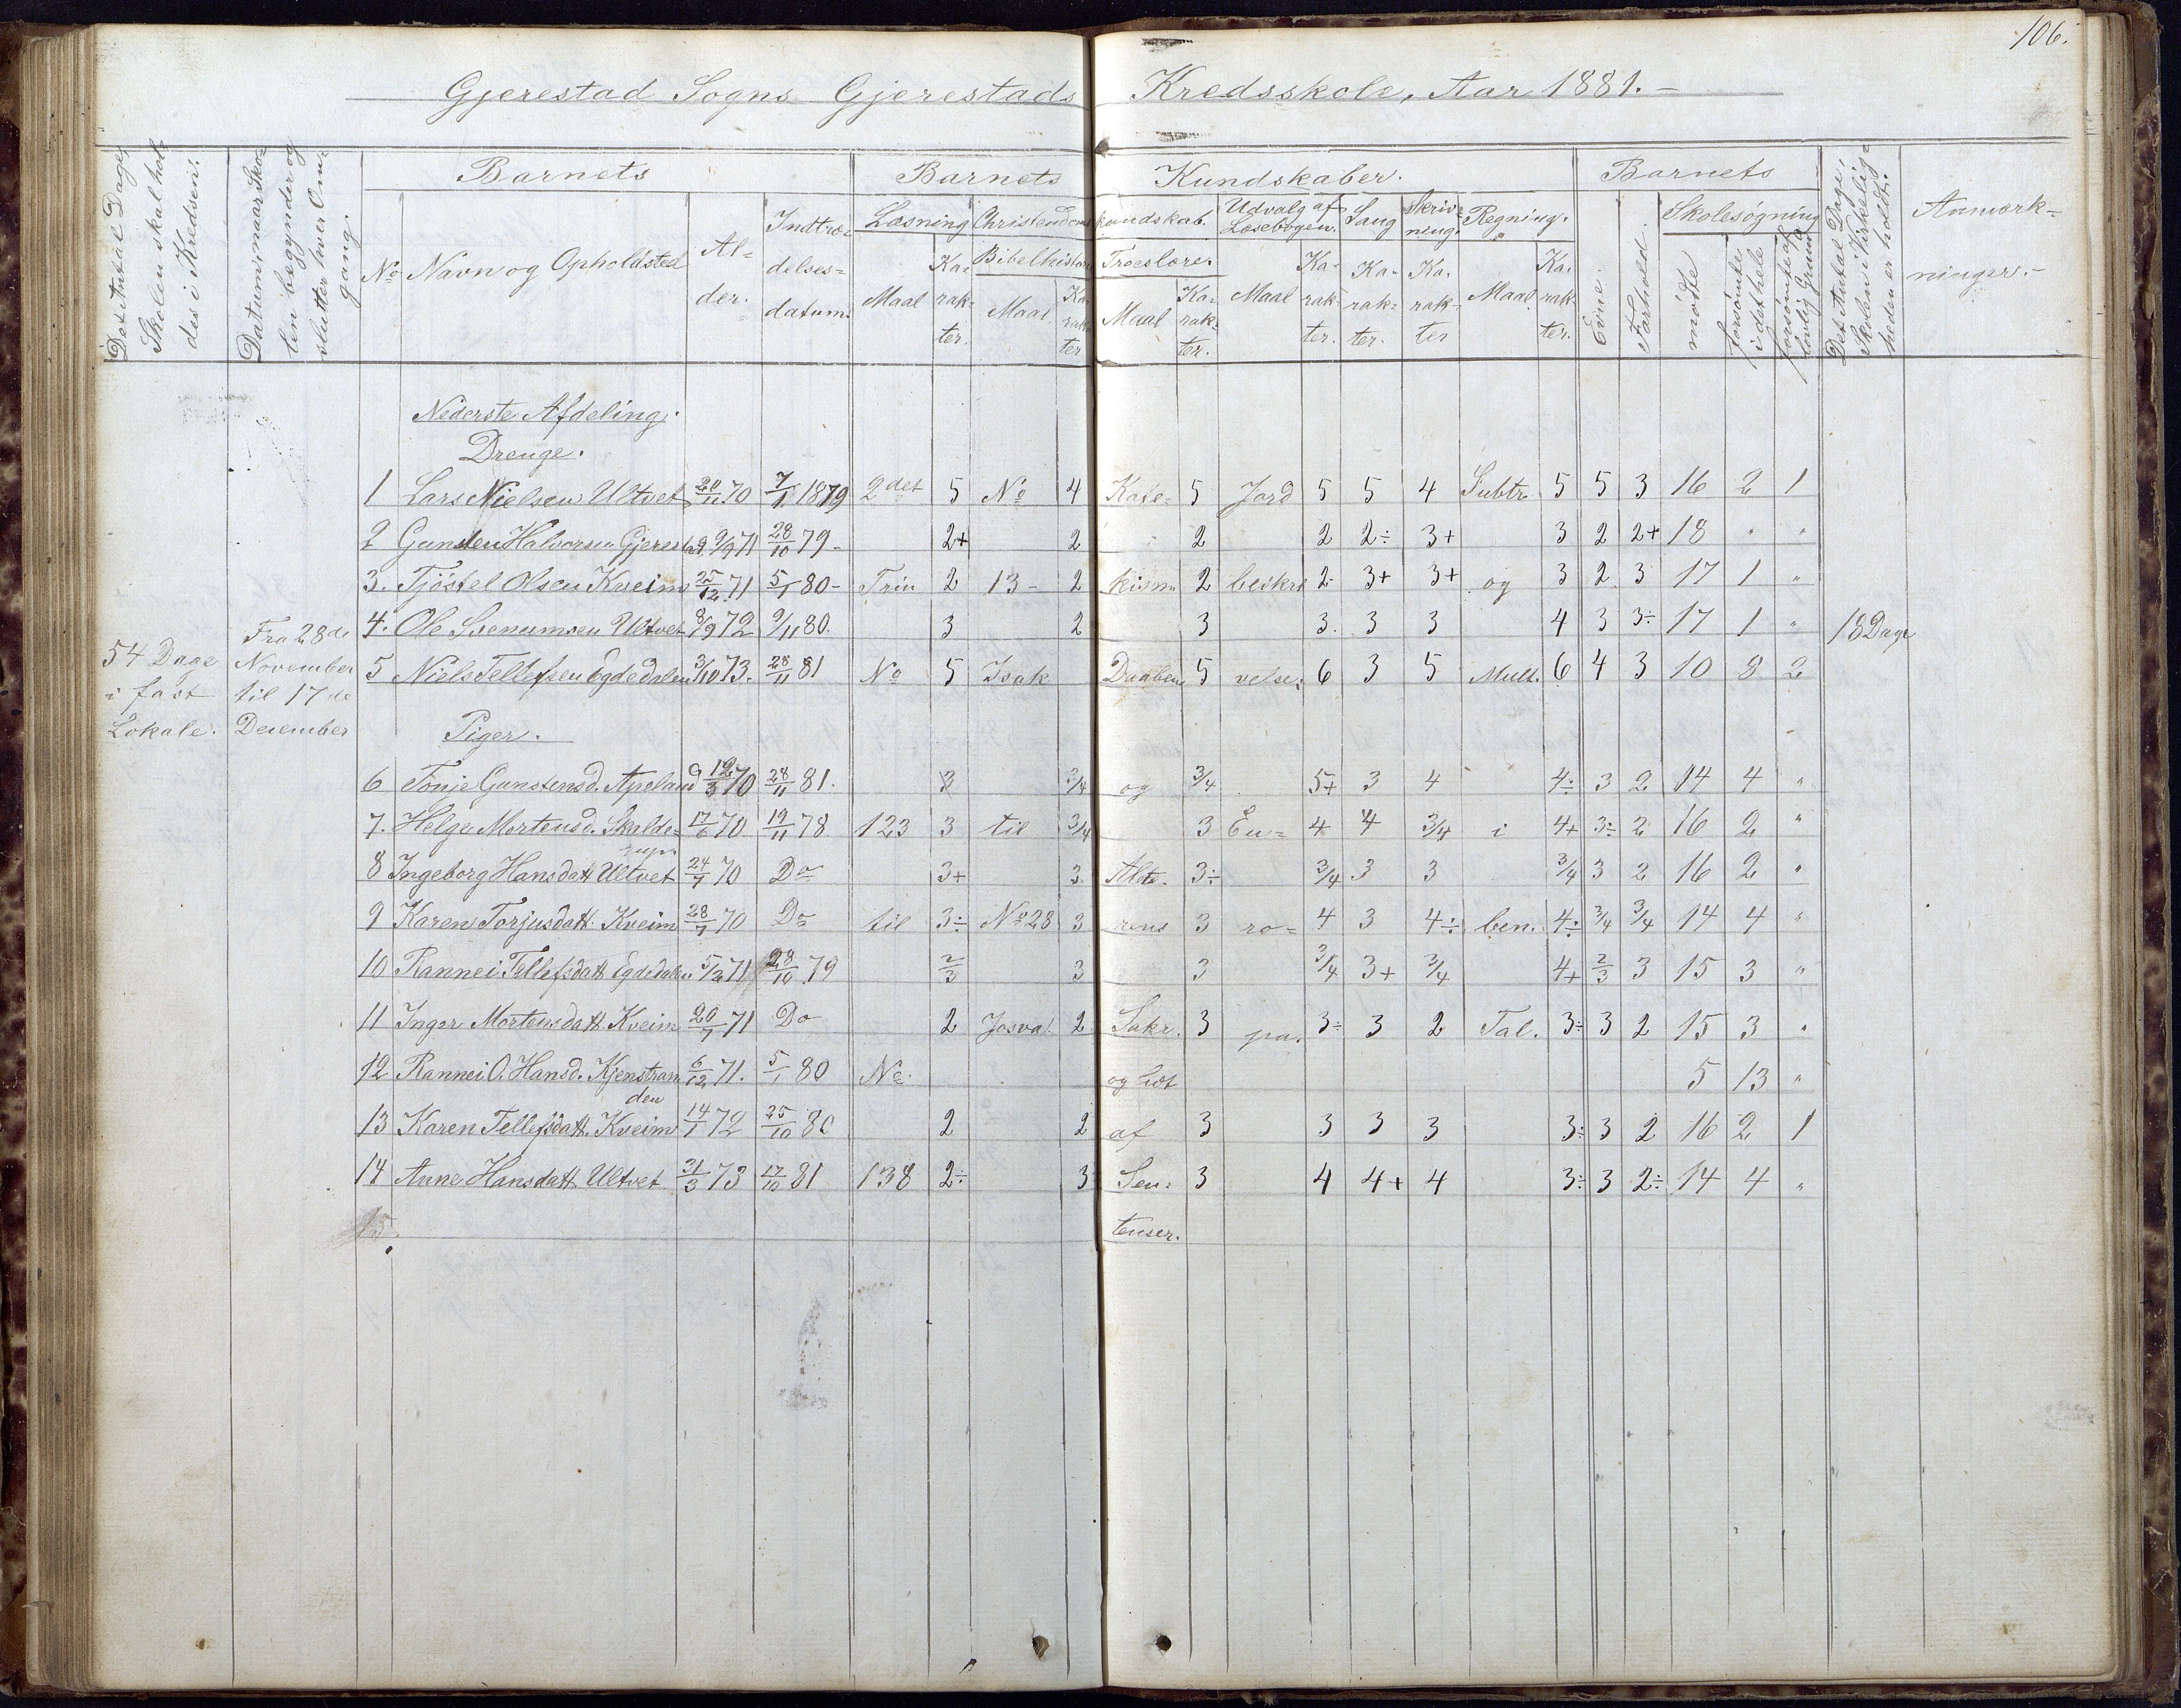 106.
Gjerestad Sogns Gjerestads Kredsskole, Aar 1881. –
Det Antal Dage, Skolen skal holdes i Kredsen.
Datum, naar Skolen begynder og slutter hver Omgang.
Barnets
No Navn og Opholdsted
Alder.
Indtrædelsesdatum.
Barnets Kundskaber.
Læsning
Maal Karakter.
Christendomskundskab.
Bibelhistorie
Maal. Karakter
Troeslære.
Maal Karakter.
Udvalg af Læsebogen.
Maal Karakter.
Sang
Karakter.
Skrivning.
Karakter
Regning.
Maal Karakter.
Barnets
Evne.
Forhold.
Skolesøgning
mødte
forsømte i det hele
forsømte af lovlig Grund
Det Antal Dage, Skolen i Virkeligheden er holdt.
Anmærkninger. –
54 Dage
i fast
Lokale.
Fra 28de
November
til 17de
December
Nederste Afdeling.
Drenge.
1 Lars Nielsen Ultvet 20/11 70 7/1 1879 2det 5 No 4 Kate- 5 Jord 5 5 4 Subtr. 5 5 3 16 2 1
2 Gunsten Halvorsen Gjerestad 9/9 71 28/10 79 – 2+ 2 2 2 2÷ 3+ 3 2 2+ 18 " "
3. Tjöstel Olsen Kveim 25/12 71 5/1 80 – Trin 2 13 – 2 kism. 2 beskri 2 3+ 3+ og 3 2 3 17 1 "
4. Ole Svenumsen Ultvet 8/9 72 9/11 80. 3 2 3 3. 3 3 4 3 3÷ 17 1 " 18 Dage
5 Niels Tellefsen Egdedalen 3/10 73. 28/11 81 No 5 Isak Daaben 5 velse. 6 3 5 Mult. 6 4 3 10 8 2
Piger.
6 Tonje Gunstensd. Apeland 12/3 70 28/11 81. 3 3/4 og 3/4 5+ 3 4 4÷ 3 2 14 4 "
7. Helge Mortensd. Skalde= 17/6 70 19/11 78 123 3 til 3/4 3 Eu= 4 4 3/4 i 4+ 3÷ 2 16 2 "
8 Ingeborg Hansdatt Ultvet 24/7 70 Do 3+ 3. Alte. 3÷ 3/4 3 3 3/4 3 2 16 2 "
9 Karen Torjusdatt. Kveim 28/7 70 Do til 3÷ No 28 3 rens 3 ro= 4 3 4÷ ben. 4÷ 3/4 3/4 14 4 "
10 Rannei Tellefsdatt Egdedalen 5/2 71 28/10 79 2/3 3 3 3/4 3+ 3/4 4+ 2/3 3 15 3 "
11 Inger Mortensdatt. Kveim 20/7 71 Do 2 Josva! 2 Sakr. 3 pa. 3÷ 3 2 Tal. 3÷ 3 2 15 3 "
12 Rannei O. Hansd. Kjenstran 6/12 71. 5/1 80 No. og lidt 5 13 "
den
13 Karen Tellefsdatt. Kveim 14/1 72 25/10 80 2 2 af 3 3 3 3 3÷ 3 2 16 2 1
14 Anne Hansdatt. Ultvet 31/3 73 17/10 81 138 2÷ 3 Sen= 3 4 4+ 4 3÷ 3 2÷ 14 4 "
15 tenser.